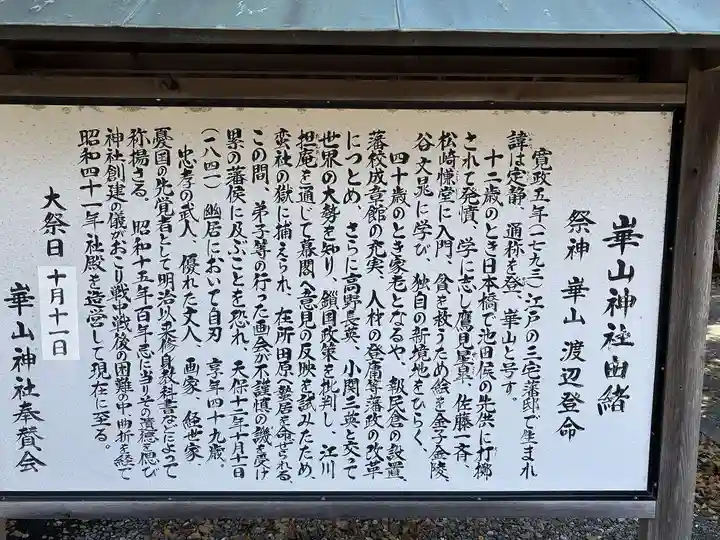 崋山神社由緒
祭神 崋山 渡辺登命
寛政五年（一七九三）江戸の三宅藩邸で生まれ
諱は定静、通称を登、崋山と号す。
十二歳のとき日本橋で池田侯の先供に打擲
されて発憤、学に志し鷹見星皐、佐藤一斉、
松崎慊堂に入門、貧を救うため絵を金子金陵、
谷文晁に学び、独自の新境地をひらく、
四十歳のとき家老となるや、報民倉の設置、
藩校成章館の充実、人材の登庸等藩政の改革
につとめ、さらに高野長英、小関三英と交って
世界の大勢を知り、鎖国政策を批判し、江川
担庵を通じて幕閣へ意見の反映を試みたため、
蛮社の獄に捕えられ、在所田原へ蟄居を命ぜられる、
この間、弟子等の行った画会が不謹慎の譏を受け
累の藩侯に及ぶことを恐れ、天保十二年十月十一日
（一八四一）幽居において自刃 享年四十九歳。
忠孝の武人、優れた文人、画家、経世家、
憂国の先覚者として明治以来修身教科書などによって
称揚さる。昭和十五年百年忌に当りその遺徳を偲び
神社創建の儀がおこり戦中戦後の困難の中曲折を経て
昭和四十一年社殿を造営して現在に至る。
大祭日 十月十一日
崋山神社奉賛会